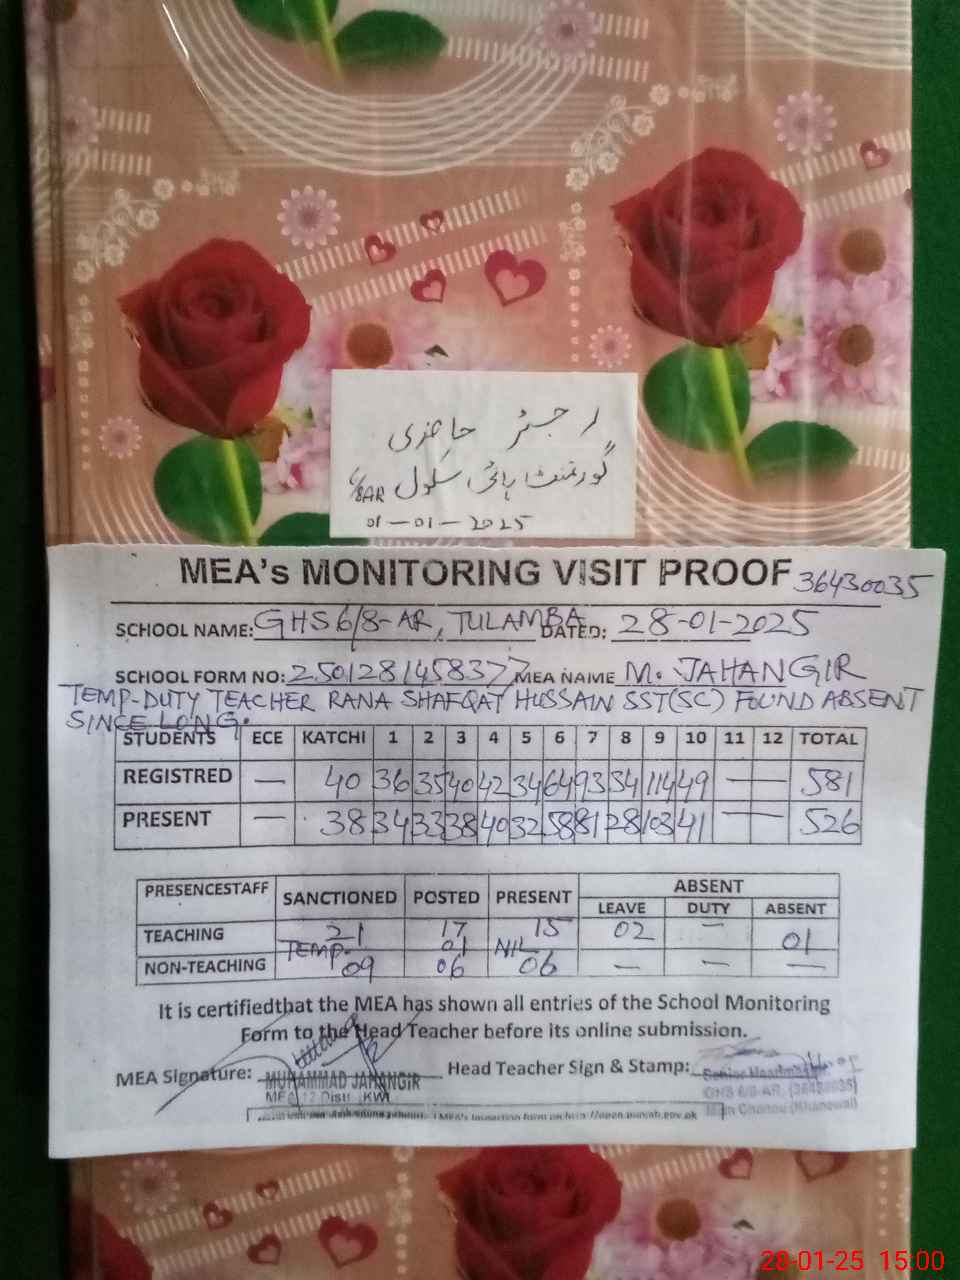 رجسٹر حاضری
گورنمنٹ ہائی سکول 6/8AR
01-01-2025
MEA's MONITORING VISIT PROOF 36430035
SCHOOL NAME: GHS 6/8-AR, TULAMBA DATED: 28-01-2025
SCHOOL FORM NO: 2501281458377 MEA NAME M. JAHANGIR
TEMP-DUTY TEACHER RANA SHAFQAT HUSSAIN SST(SC) FOUND ABSENT
SINCE LONG.
STUDENTS ECE KATCHI 1 2 3 4 5 6 7 8 9 10 11 12 TOTAL
REGISTRED — 40 36 35 40 42 34 64 93 34 114 49 — — 581
PRESENT — 38 34 33 38 40 32 58 81 28 103 41 — — 526
PRESENCESTAFF SANCTIONED POSTED PRESENT ABSENT
LEAVE DUTY ABSENT
TEACHING 21 17 15 02 — 01
TEMP. 01 NIL
NON-TEACHING 09 06 06 — — —
It is certifiedthat the MEA has shown all entries of the School Monitoring
Form to the Head Teacher before its online submission.
MEA Signature: Head Teacher Sign & Stamp:
MUHAMMAD JAHANGIR
Senior Headmaster
GHS 6/8-AR, (36430035)
Mian Channu (Khanewal)
MEA's Inspection form on http://open.punjab.gov.pk
28-01-25 15:00